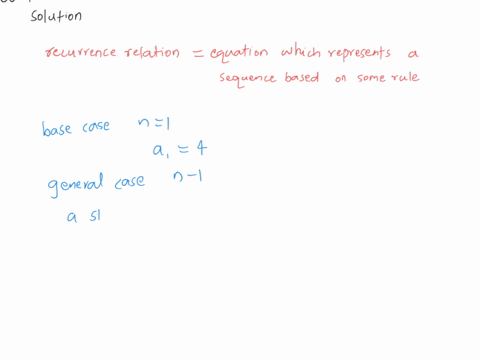 Solution
recurrence relation = equation which represents a
sequence based on some rule
base case n=1
a₁ = 4
general case n-1
a sl